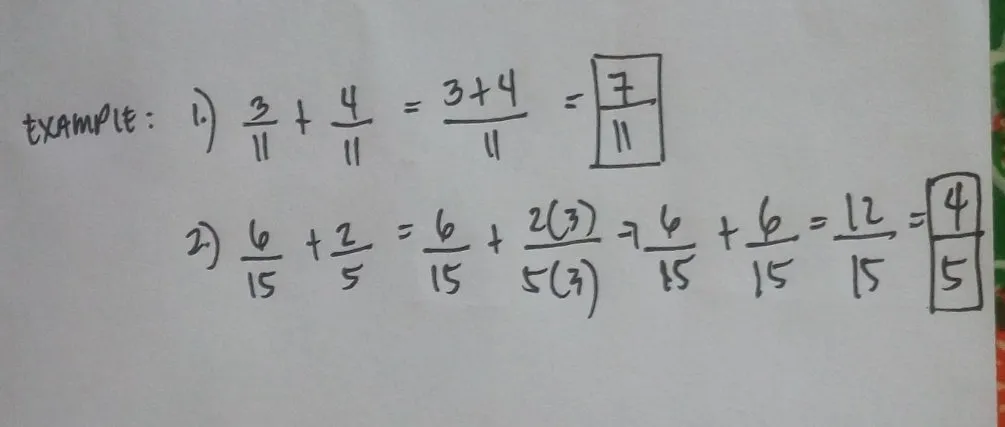 EXAMPLE: 1.) 3/11 + 4/11 = 3+4/11 = 7/11
2.) 6/15 + 2/5 = 6/15 + 2(3)/5(3) → 6/15 + 6/15 = 12/15 = 4/5